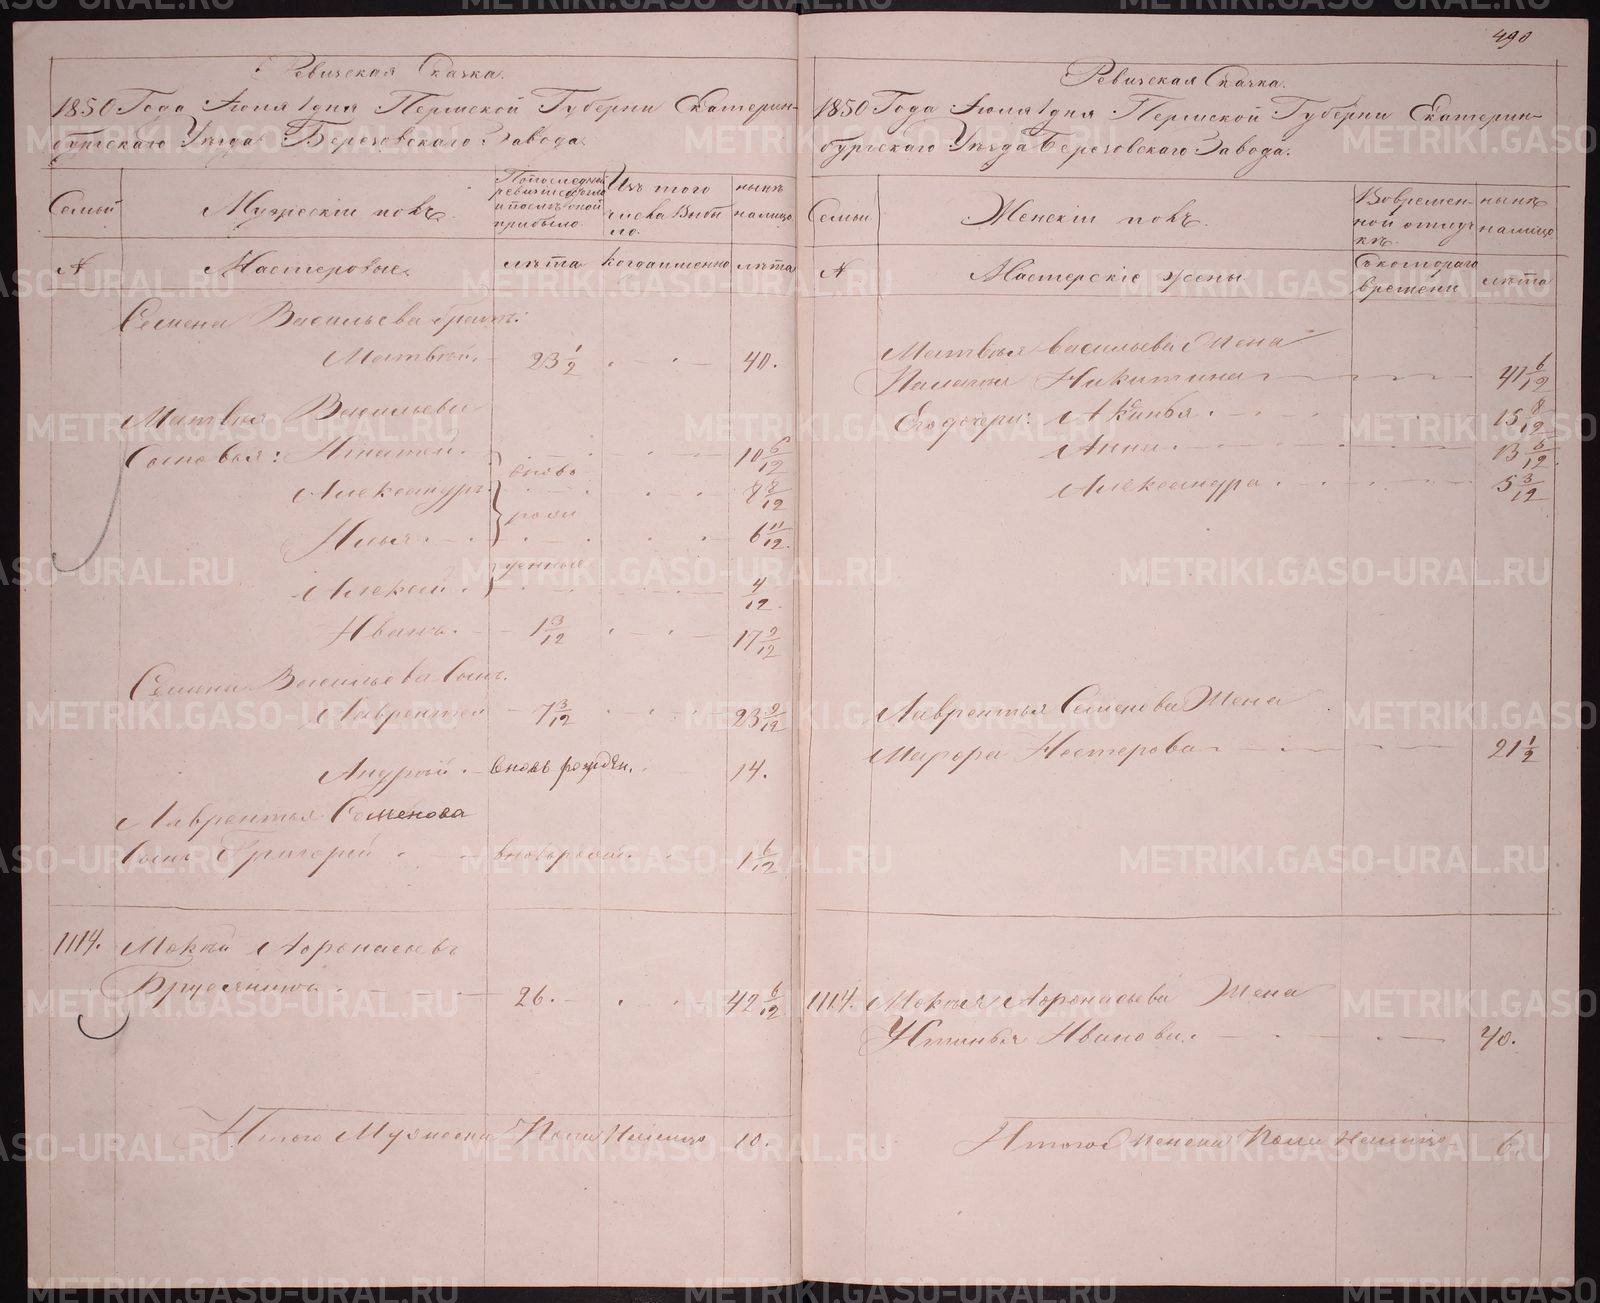 490
Ревизская Сказка.
1850 Года Июня 1 дня Пермской Губерни Екатерин-
бургскаго Уезда Березовскаго Завода.
Семьи
Мужескiй полъ.
По последней
ревизiи состояло
и после оной
прибыло
Изъ того
числа выбы
ло
ныне
налицо
№
Мастеровые.
лета
когда именно
лета
Семена Васильева братъ:
Матвей. 23 1/2 40.
Матвея Васильева
Сыновья: Игнатей. 10 6/12
вновь
Александръ. 8 8/12
рож
Илья. 6 11/12
денные
Алексей. 4/12
Иванъ. 1 3/12 17 9/12
Семена Васильева Сынъ.
Лаврентей 7 3/12 23 9/12
Андрей. вновь рожден. 14.
Лаврентья Семенова
Сынъ Григорей вновь рожд. 1 6/12
1114. Мокей Афонасьевъ
Брусянинъ. 26. 42 6/12
Итого Мужеска Пола Налицо 10.
Ревизская Сказка.
1850 Года Июня 1 дня Пермской Губерни Екатерин-
бургскаго Уезда Березовскаго Завода.
Семьи
Женскiй полъ.
Во времен-
ной отлуч
ке.
ныне
налицо
№
Мастерскiе жены
Съ котораго
времени
лета
Матвея Васильева Жена
Палагея Никитина 41 6/12
Его дочери: Акинья. 15 8/12
Анна. 13 6/12
Александра. 5 3/12
Лаврентья Семенова Жена
Марфа Нестерова 21 1/2
1114. Мокея Афонасьева Жена
Устинья Иванова. 40.
Итого Женска Пола Налицо 6.
METRIKI.GASO-URAL.RU